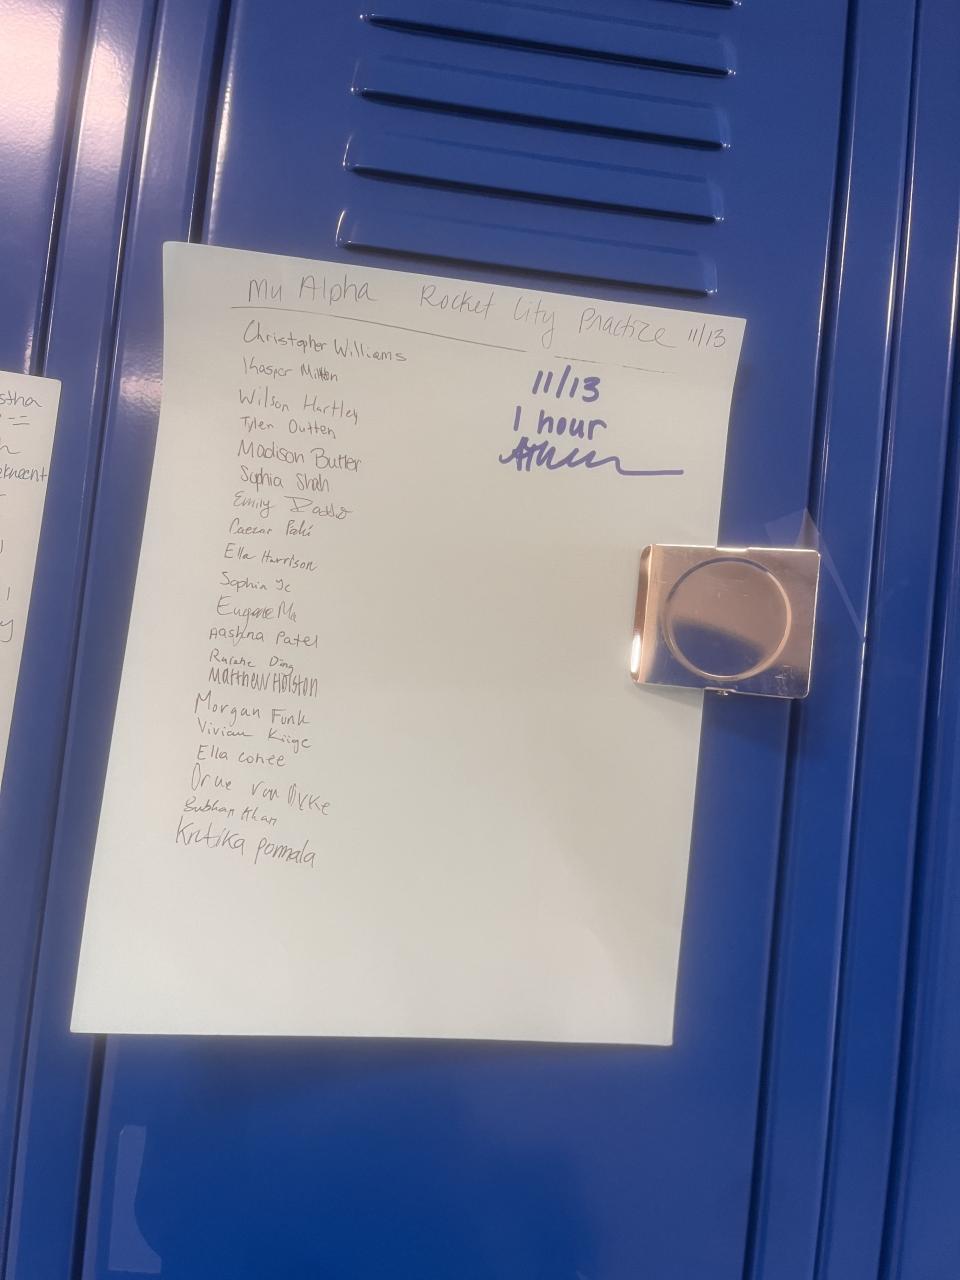 Mu Alpha Rocket City Practice 11/13
Christopher Williams
Kasper Milton
Wilson Hartley
Tyler Outten
Madison Butler
Sophia Shah
Emily
Caesar
Ella Harrison
Sophia
Eugene Ma
Aashna Patel
Ding
Matthew Holston
Morgan Funk
Vivian
Ella cohee
Drue van Dyke
Subhan Khan
Kritika ponnala
11/13
1 hour
stha
eknecht